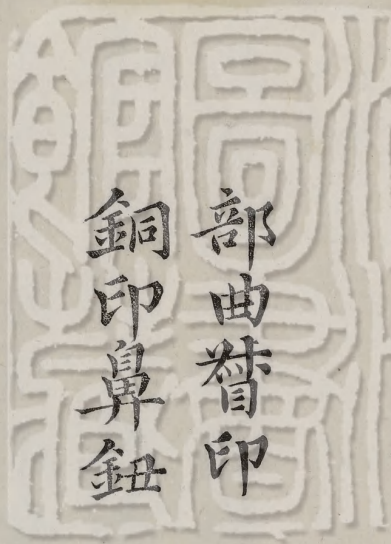 部曲督印
銅印鼻鈕